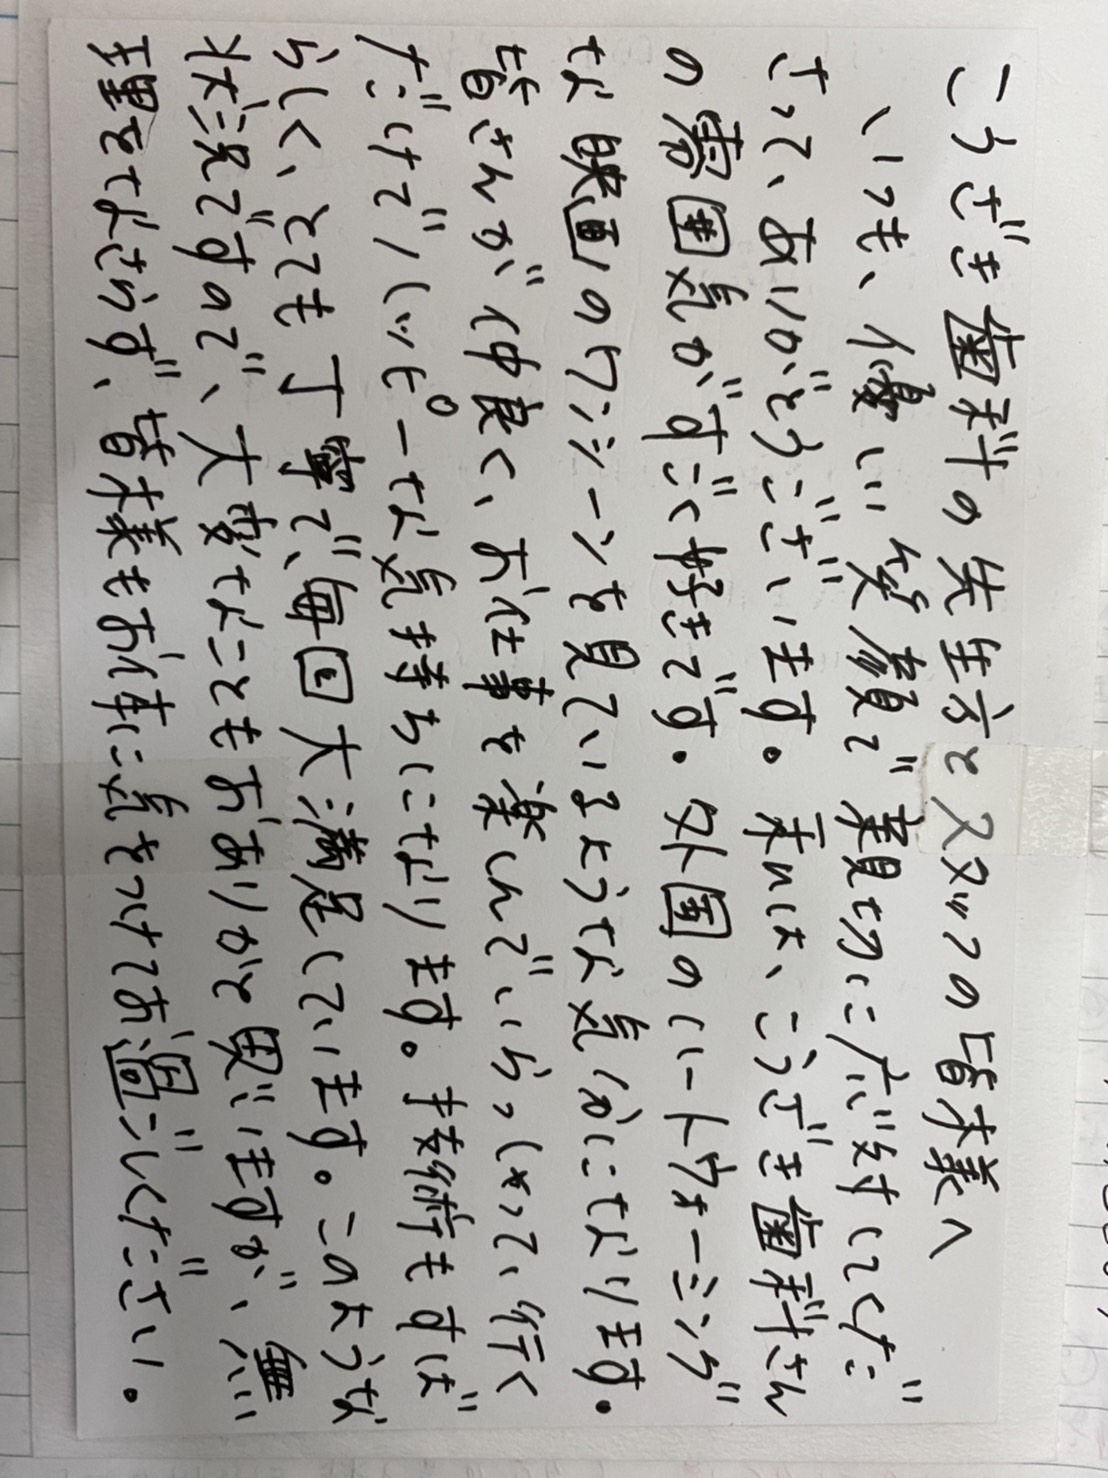 こうざき歯科の先生方とスタッフの皆様へ
いつも、優しい笑顔で親切に応対してくだ
さって、ありがとうございます。私は、こうざき歯科さん
の雰囲気がすごく好きです。外国のハートウォーミング
な映画のワンシーンを見ているような気分になります。
皆さんが仲良く、お仕事を楽しんでいらっしゃって、行く
だけでハッピーな気持ちになります。技術もすば
らしく、とても丁寧で、毎回大満足しています。このような
状況ですので、大変なこともおありかと思いますが、無
理をなさらず、皆様もお体に気をつけてお過ごしください。